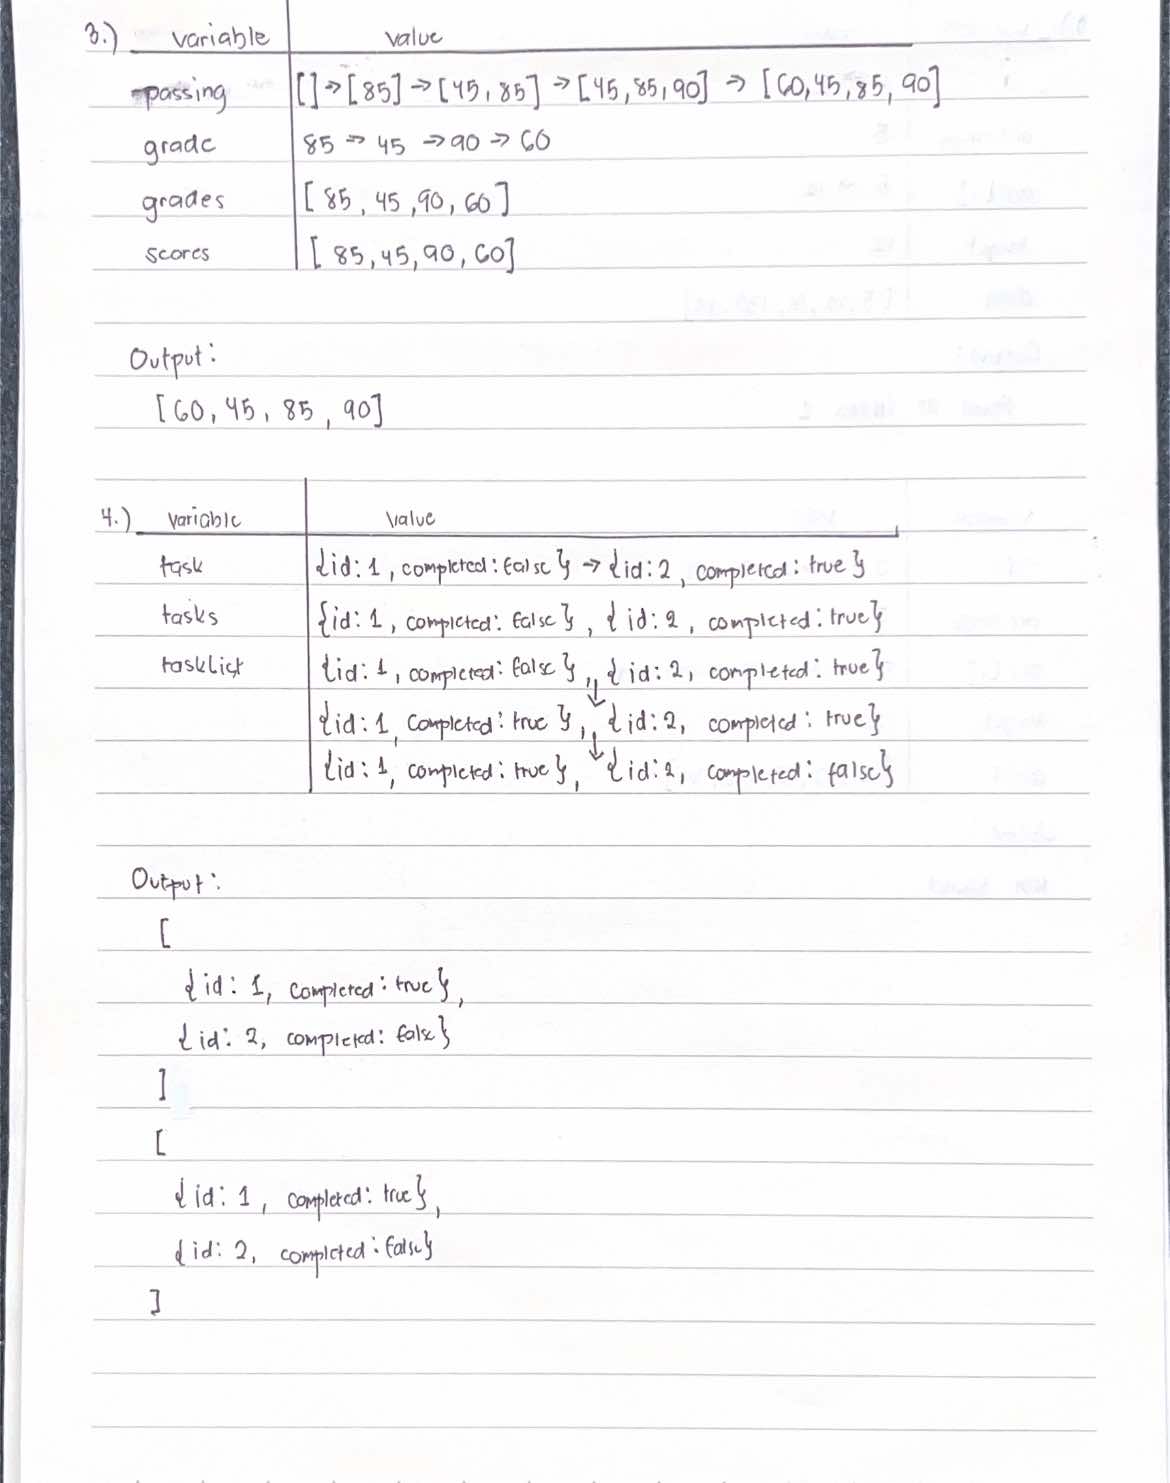 3.) variable value
passing [] → [85] → [45, 85] → [45, 85, 90] → [60, 45, 85, 90]
grade 85 → 45 → 90 → 60
grades [85, 45, 90, 60]
scores [85, 45, 90, 60]
Output:
[60, 45, 85, 90]
4.) variable value
task {id: 1, completed: false} → {id: 2, completed: true}
tasks {id: 1, completed: false}, {id: 2, completed: true}
taskList {id: 1, completed: false}, {id: 2, completed: true}
↓
{id: 1, completed: true}, {id: 2, completed: true}
↓
{id: 1, completed: true}, {id: 2, completed: false}
Output:
[
{id: 1, completed: true},
{id: 2, completed: false}
]
[
{id: 1, completed: true},
{id: 2, completed: false}
]